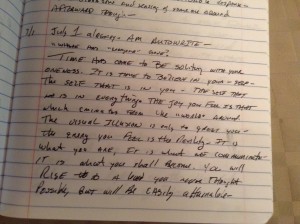 and seeing of someone around
AFTERWARD THOUGH -
7/1 July 1 already - Am AUTOWRITE -
"WHERE HAS "everyone" GONE?
TIME HAS COME TO BE SOLITARY WITH YOUR
ONENESS. IT IS TIME TO BELIEVE IN YOUR - SELF
THE SELF THAT IS IN YOU - THE SELF THAT
is IN EVERYTHING THE JOY YOU FEEL IS THAT
WHICH CALLS THE "WORLD" AROUND.
THE VISUAL ILLUSION IS ONLY TO GREET YOU -
THE ENERGY YOU FEEL IS THE Reality. IT IS
WHAT YOU ARE, IT IS WHAT WE COMMUNICATE -
IT IS WHAT YOU SHALL BECOME. YOU WILL
RISE TO A LEVEL YOU NEVER THOUGHT
POSSIBLE, BUT WILL BE EASILY ATTAINABLE -